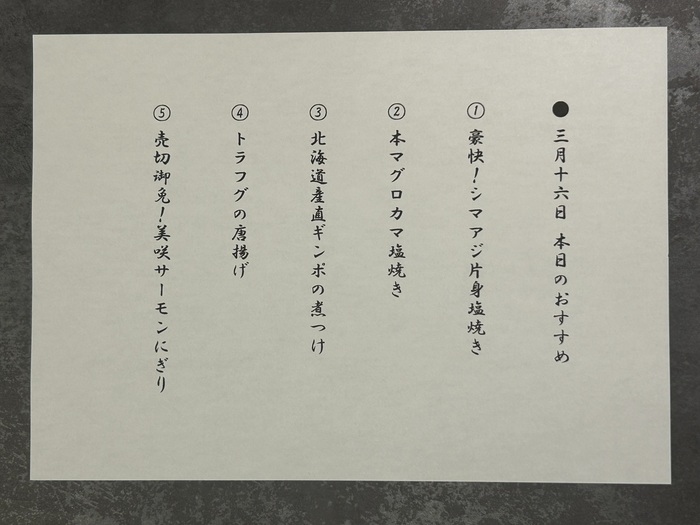 ●三月十六日 本日のおすすめ
①豪快！シマアジ片身塩焼き
②本マグロカマ塩焼き
③北海道産直ギンポの煮つけ
④トラフグの唐揚げ
⑤売切御免！美咲サーモンにぎり